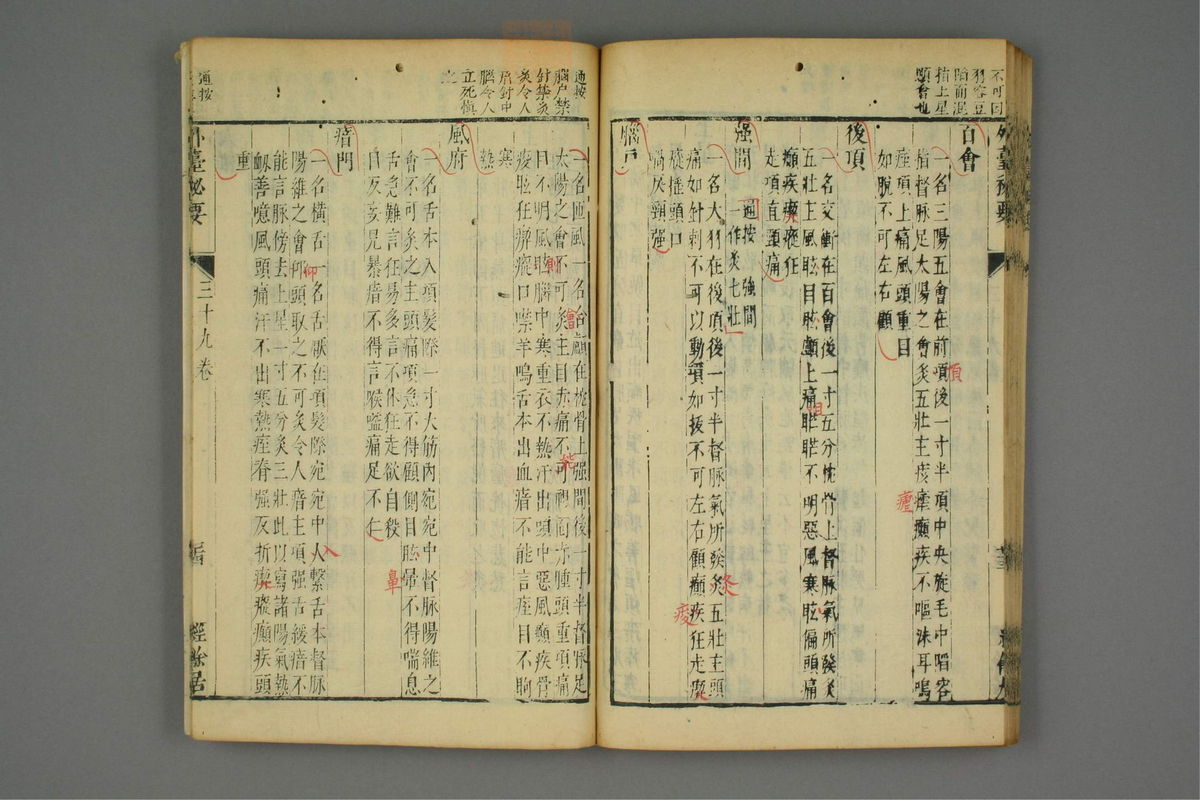 不可因
羽容豆
陷而混
指上星
顖會也
外臺秘要
百會
一名三陽五會在前頂後一寸半項中央旋毛中陷容
指督脉足太陽之會灸五壯主痎瘧癲疾不嘔沫耳鳴
痓項上痛風頭重目
如脫不可左右顧
後頂
一名交衝在百會後一寸五分枕骨上督脉氣所發灸
五壯主風眩目䀮顱上痛䀮䀮不明惡風寒眩偏頭痛
癲疾瘈瘲狂
走項直頸痛
强間
通按强間
一作灸七壯
一名大羽在後項後一寸半督脉氣所發灸五壯主頭
痛如針刺不可以動項如拔不可左右顧癲疾狂走瘈
瘲搖頭口
喎戾頸强
腦戶
通按
腦戶禁
針禁灸
灸令人
瘖針中
腦令人
立死慎
之
一名匝風一名合顱在枕骨上强間後一寸半督脉足
太陽之會不可灸主目赤痛不可視面赤腫頭重項痛
目不明風眩腦中寒重衣不熱汗出頭中惡風癲疾骨
痠眩狂瘈瘲口噤羊鳴舌本出血瘖不能言痓目不眴
寒
熱
風府
一名舌本入項髮際一寸大筋內宛宛中督脉陽維之
會不可灸之主頭痛項急不得顧側目䀮暈不得喘息
舌急難言狂易多言不休狂走欲自殺
目反妄見暴瘖不得言喉嗌痛足不仁
瘖門
一名橫舌一名舌厭在項髮際宛宛中人繫舌本督脉
陽維之會仰頭取之不可灸灸令人瘖主項强舌緩瘖不
能言脉傍去上星一寸五分灸三壯此以寫諸陽氣熱
衂善噫風頭痛汗不出寒熱痓脊强反折瘈瘲癲疾頭
重
通按
外臺秘要
三十九卷
經餘居
頂
瘧
仰
入